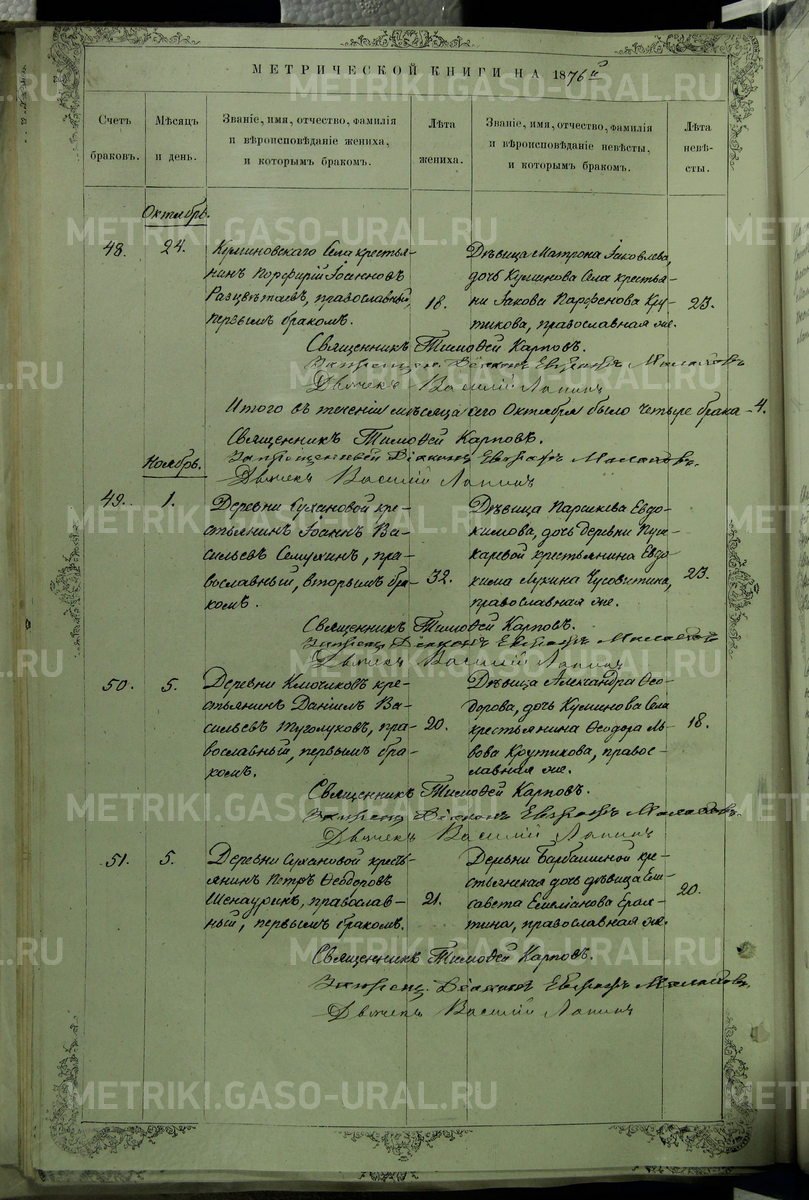 МЕТРИЧЕСКОЙ КНИГИ НА 1876й
Счетъ браковъ.
Мѣсяцъ и день.
Званіе, имя, отчество, фамилія
и вѣроисповѣданіе жениха,
и которымъ бракомъ.
Лѣта жениха.
Званіе, имя, отчество, фамилія
и вѣроисповѣданіе невѣсты,
и которымъ бракомъ.
Лѣта невѣ-
сты.
Октябрь.
48.
24.
Куминовскаго Села крестья-
нинъ Порфирій Іоанновъ
Разцвѣтаевъ, православный,
первымъ бракомъ.
18.
Дѣвица Матрона Іаковлева,
дочь Куминова Села крестья-
нина Іакова Парфенова Кру-
тикова, православная же.
23.
Священникъ Тимофей Карповъ.
Діаконъ Евграфъ
Дьячекъ Василій Лапинъ
Итого въ теченіи мѣсяца сего Октября было четыре брака - 4.
Священникъ Тимофей Карповъ.
Запрещенный Діаконъ Евграфъ
Дьячекъ Василій Лапинъ
Ноябрь.
49.
1.
Деревни Сухановой кре-
стьянинъ Іоаннъ Ва-
сильевъ Семухинъ, пра-
вославный, вторымъ бра-
комъ.
32.
Дѣвица Параскева Евдо-
кимова, дочь деревни Пуш-
каревой крестьянина Евдо-
кима Лукина Чусовитина,
православная же.
23.
Священникъ Тимофей Карповъ.
Діаконъ Евграфъ
Дьячекъ Василій Лапинъ
50.
5.
Деревни Ключиковъ кре-
стьянинъ Даніилъ Ва-
сильевъ Туголуковъ, пра-
вославный, первымъ бра-
комъ.
20.
Дѣвица Александра Ѳео-
дорова, дочь Куминова Села
крестьянина Ѳеодора Ль-
вова Крутикова, правос-
лавная же.
18.
Священникъ Тимофей Карповъ.
Діаконъ Евграфъ
Дьячекъ Василій Лапинъ
51.
5.
Деревни Сухановой кресть-
янинъ Петръ Ѳеодоровъ
Шенаурикъ, православ-
ный, первымъ бракомъ.
21.
Деревни Барбашиной кре-
стьянская дочь дѣвица Ели-
савета Емеліанова Ерал-
тина, православная же.
20.
Священникъ Тимофей Карповъ.
Запрещ. Діаконъ Евграфъ
Дьячекъ Василій Лапинъ
METRIKI.GASO-URAL.RU